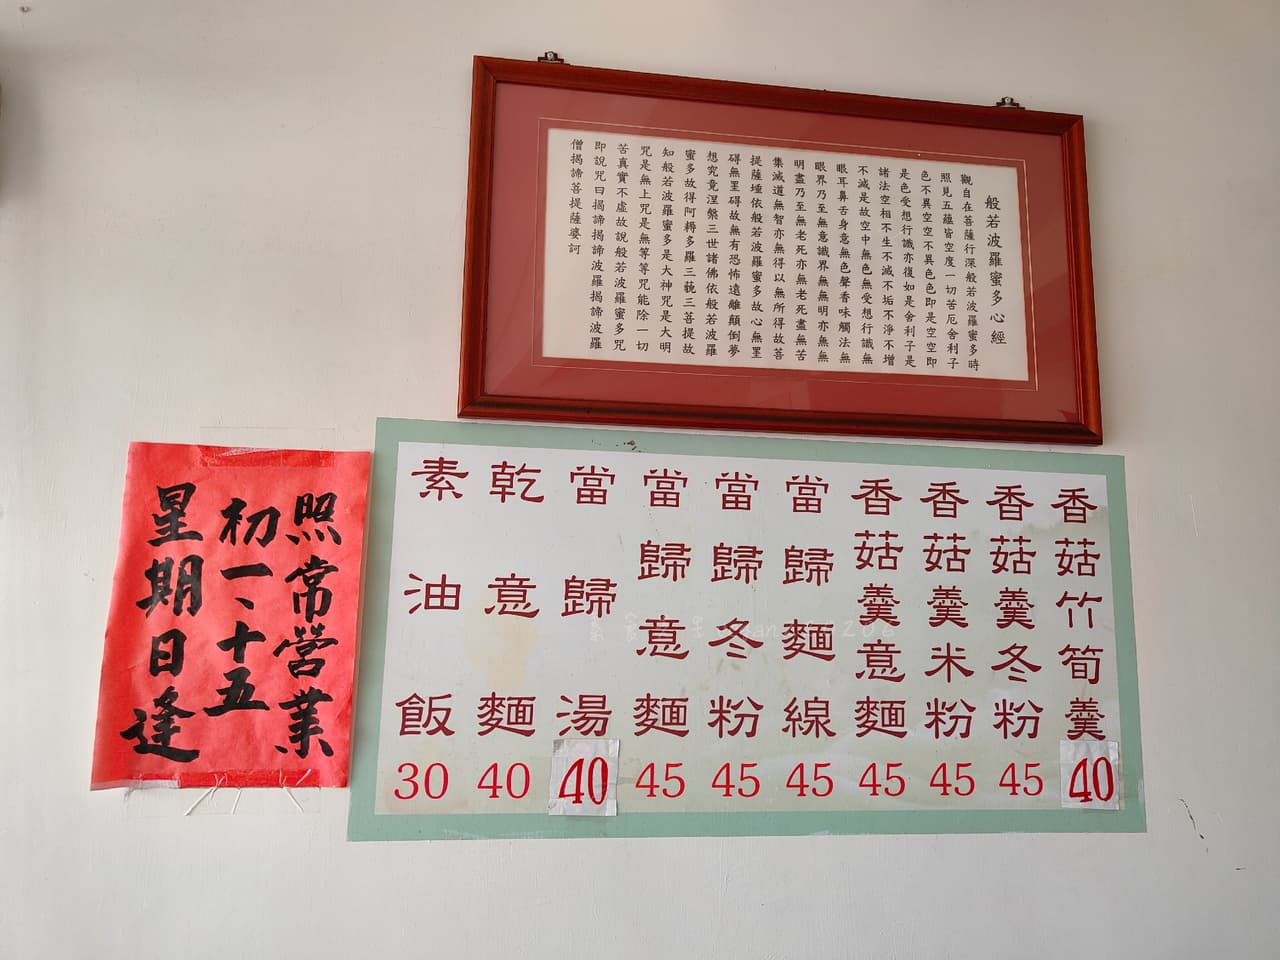 般若波羅蜜多心經
觀自在菩薩行深般若波羅蜜多時
照見五蘊皆空度一切苦厄舍利子
色不異空空不異色色即是空空即
是色受想行識亦復如是舍利子是
諸法空相不生不滅不垢不淨不增
不減是故空中無色無受想行識無
眼耳鼻舌身意無色聲香味觸法無
眼界乃至無意識界無無明亦無無
明盡乃至無老死亦無老死盡無苦
集滅道無智亦無得以無所得故菩
提薩埵依般若波羅蜜多故心無罣
礙無罣礙故無有恐怖遠離顛倒夢
想究竟涅槃三世諸佛依般若波羅
蜜多故得阿耨多羅三藐三菩提故
知般若波羅蜜多是大神咒是大明
咒是無上咒是無等等咒能除一切
苦真實不虛故說般若波羅蜜多咒
即說咒曰揭諦揭諦波羅揭諦波羅
僧揭諦菩提薩婆訶
香菇竹筍羹 40
香菇羹冬粉 45
香菇羹米粉 45
香菇羹意麵 45
當歸麵線 45
當歸冬粉 45
當歸意麵 45
當歸湯 40
乾意麵 40
素油飯 30
照常營業
初一、十五
星期日逢